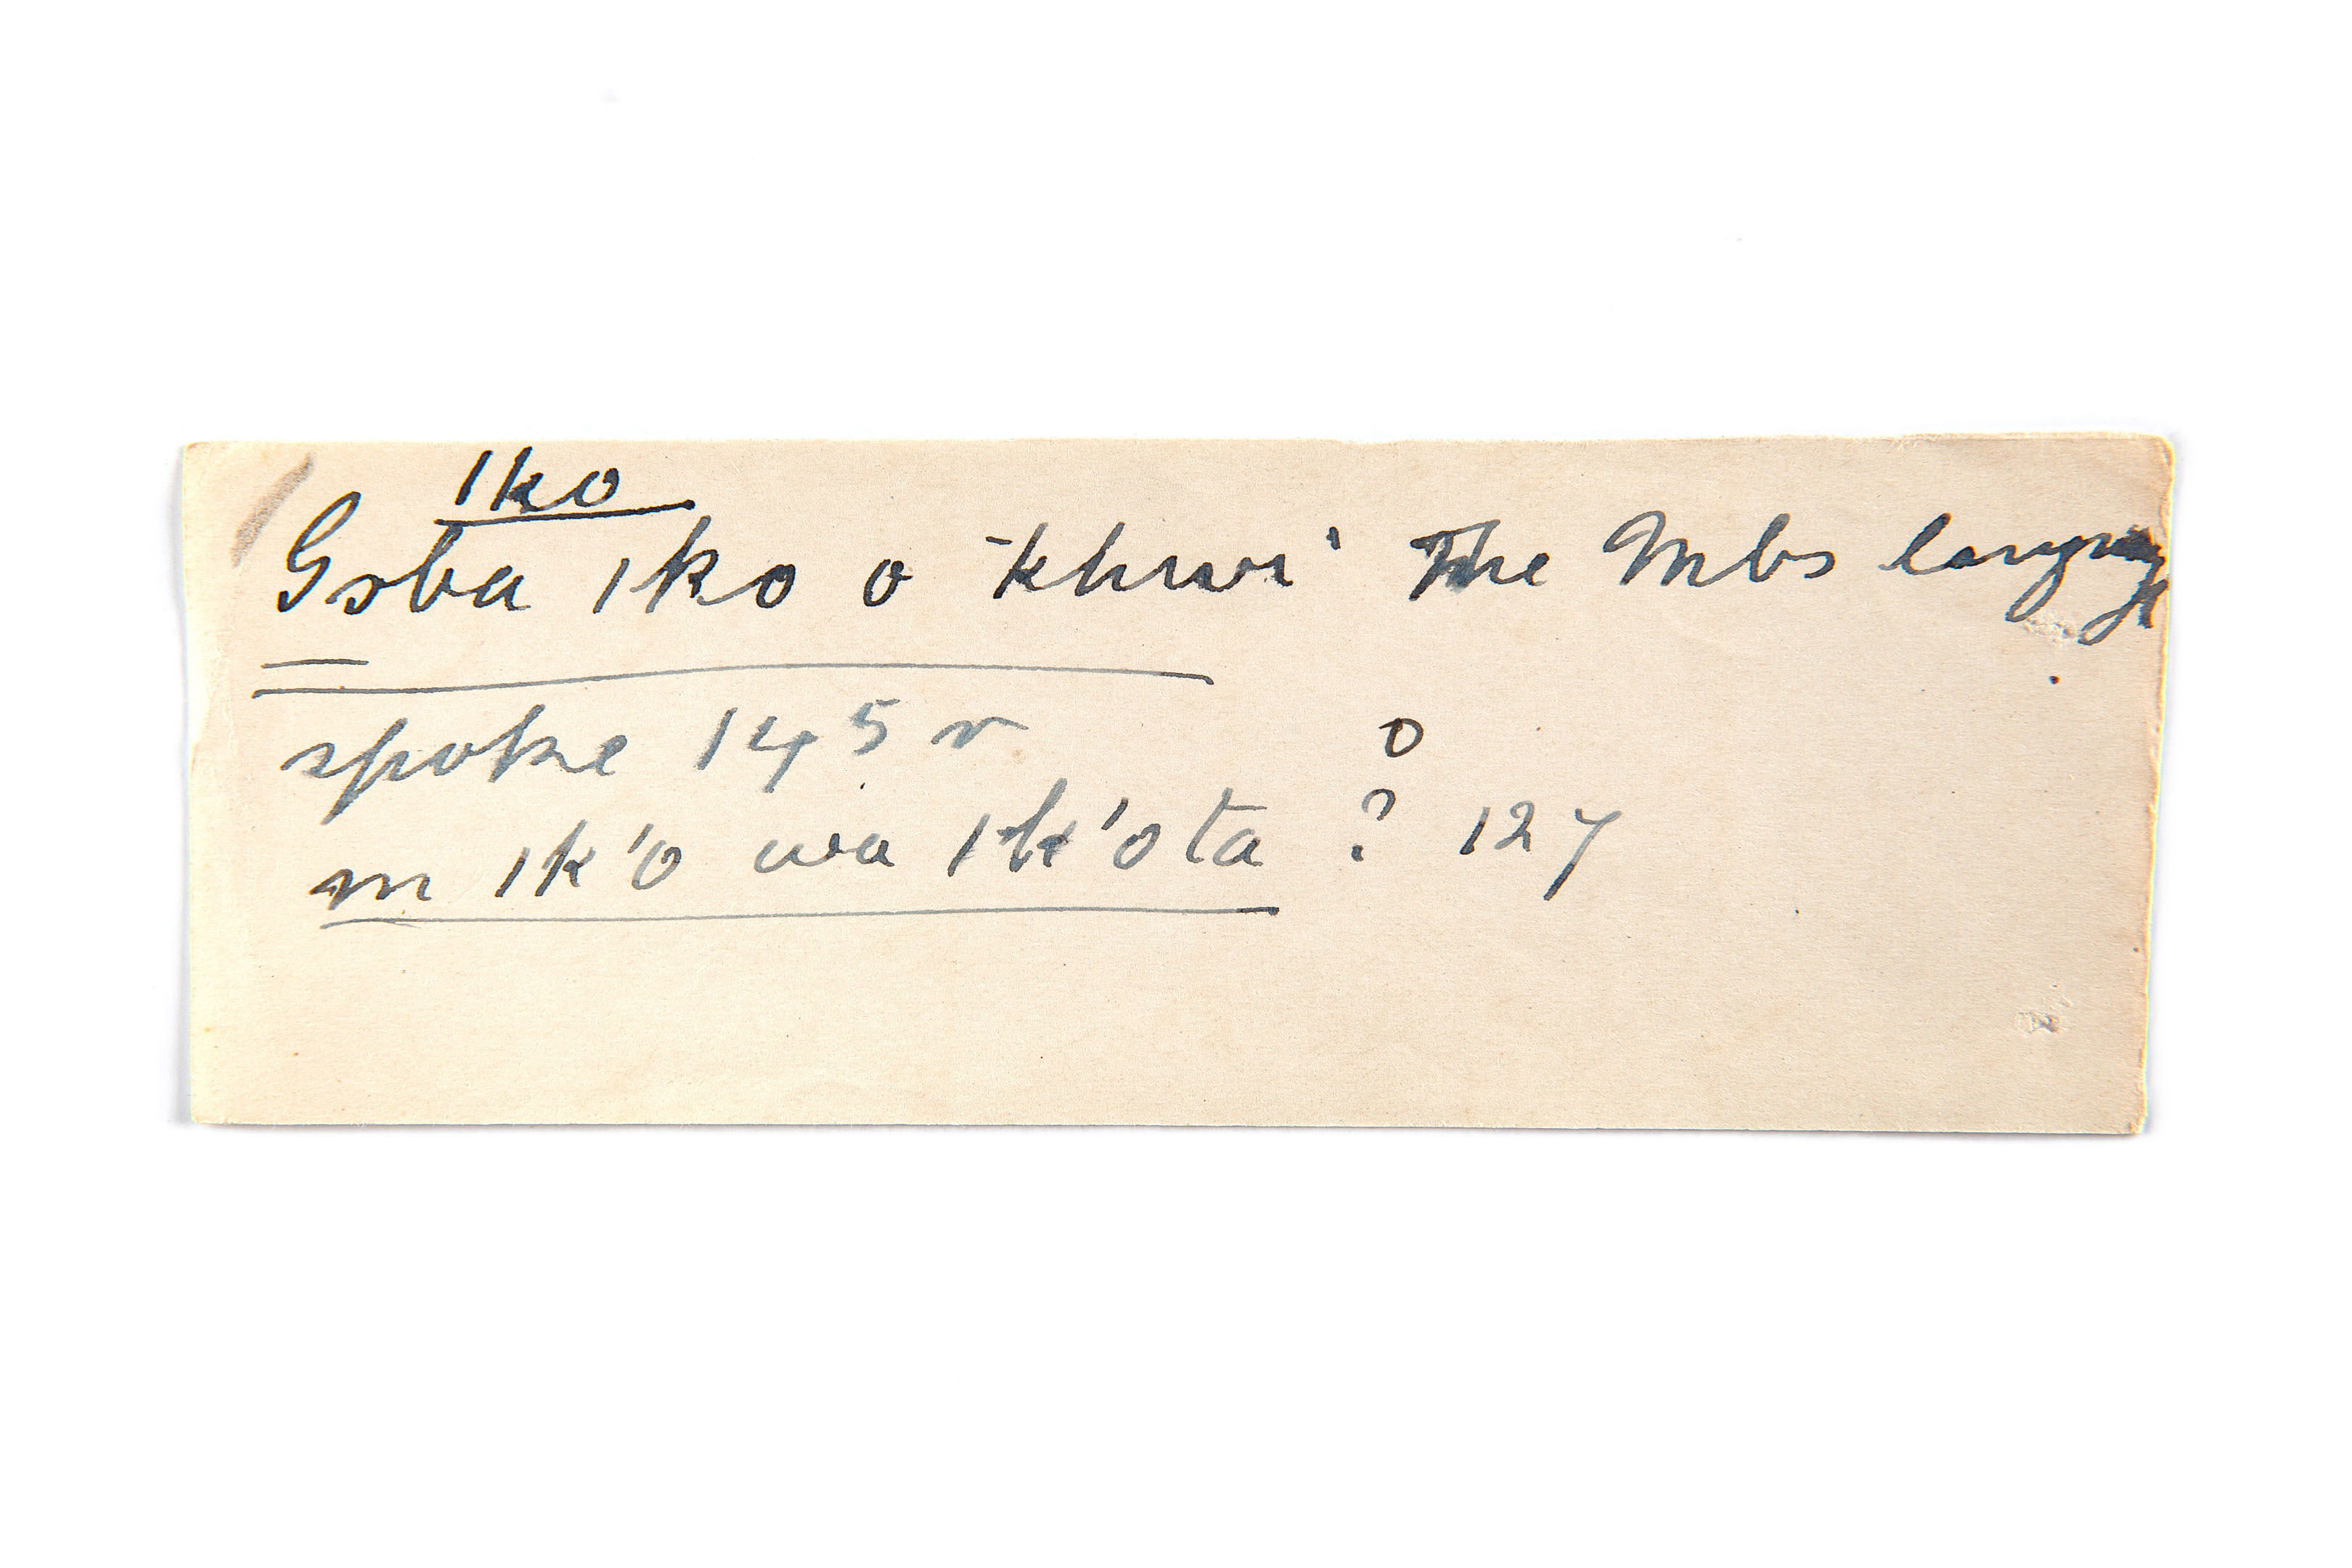 ıko
Gɜba ıko o ʻkhwiʼ The Mbs language
spoke 145 v
o
m ık'o wa ık'ota ? 127